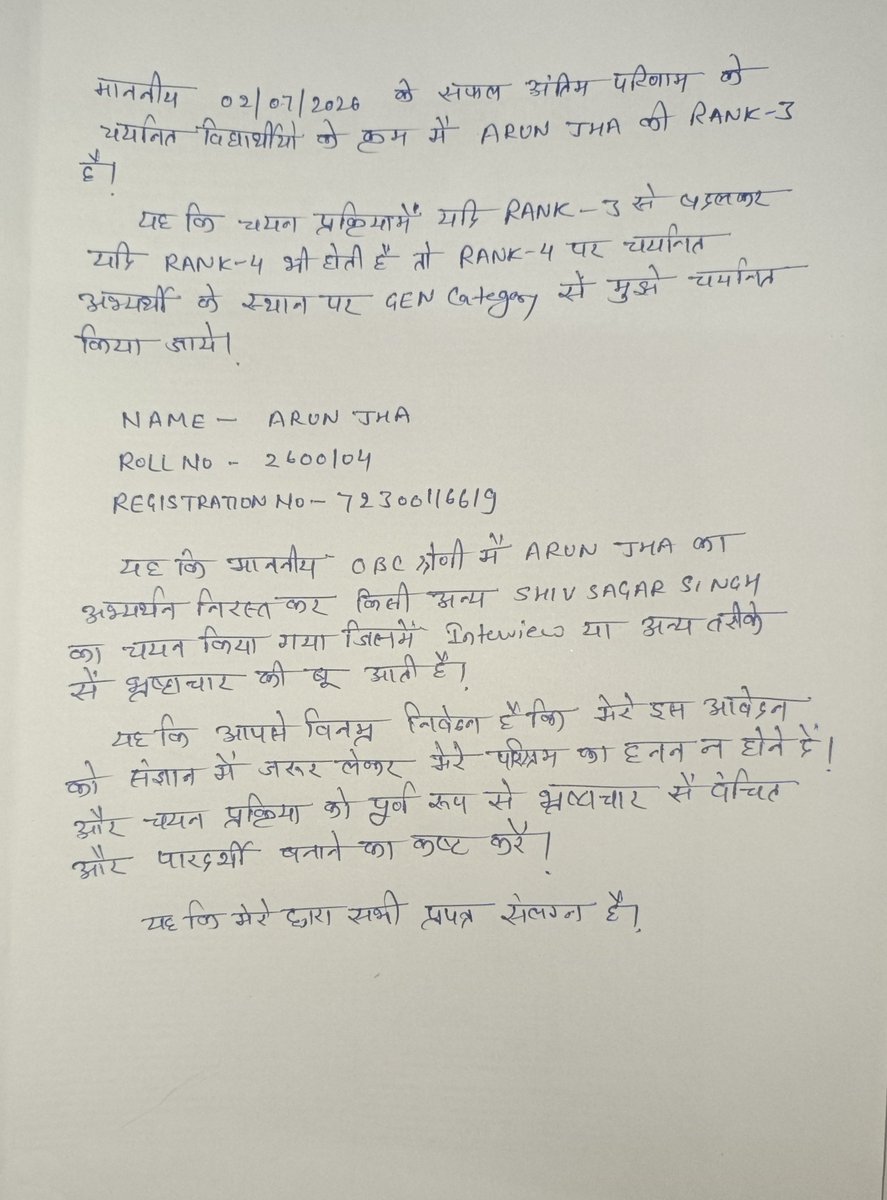 माननीय 02/07/2026 के सफल अंतिम परिणाम के
चयनित विद्यार्थीयो के क्रम मै ARUN JHA की RANK-3
है।
यह कि चयन प्रक्रियामें यदि RANK-3 से बदलकर
यदि RANK-4 भी होती है तो RANK-4 पर चयनित
अभ्यर्थी के स्थान पर GEN Category से मुझे चयनित
किया जाये।
NAME - ARUN JHA
ROLL NO - 2600104
REGISTRATION NO - 72300116619
यह कि माननीय OBC श्रेणी मै ARUN JHA का
अभ्यर्थन निरस्त कर किसी अन्य SHIV SAGAR SINGH
का चयन किया गया जिसमें Interview या अन्य तरीके
से भ्रष्टाचार की बू आती है।
यह कि आपसे विनम्र निवेदन है कि मेरे इस आवेदन
को संज्ञान में जरूर लेकर मेरे परिश्रम का हनन न होने दें।
और चयन प्रक्रिया को पूर्ण रूप से भ्रष्टाचार से वंचित
और पारदर्शी बनाने का कष्ट करें।
यह कि मेरे द्वारा सभी प्रपत्र संलग्न है।